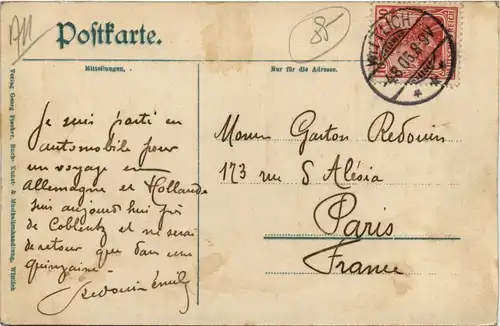 All
88
Postkarte.
Mitteilungen.
Nur für die Adresse.
WITTLICH
8.06.8-9V
REICH
10
Je suis parti en
automobile pour
un voyage en
Allemagne et Hollande
suis aujourd'hui près
de Coblentz et ne serai
de retour que dans une
quinzaine
Redouin Emile
Monsr Gaston Redouin
173 rue d'Alésia
Paris
France
Verlag Georg Fischer, Buch- Kunst- u. Musikalienhandlung, Wittlich